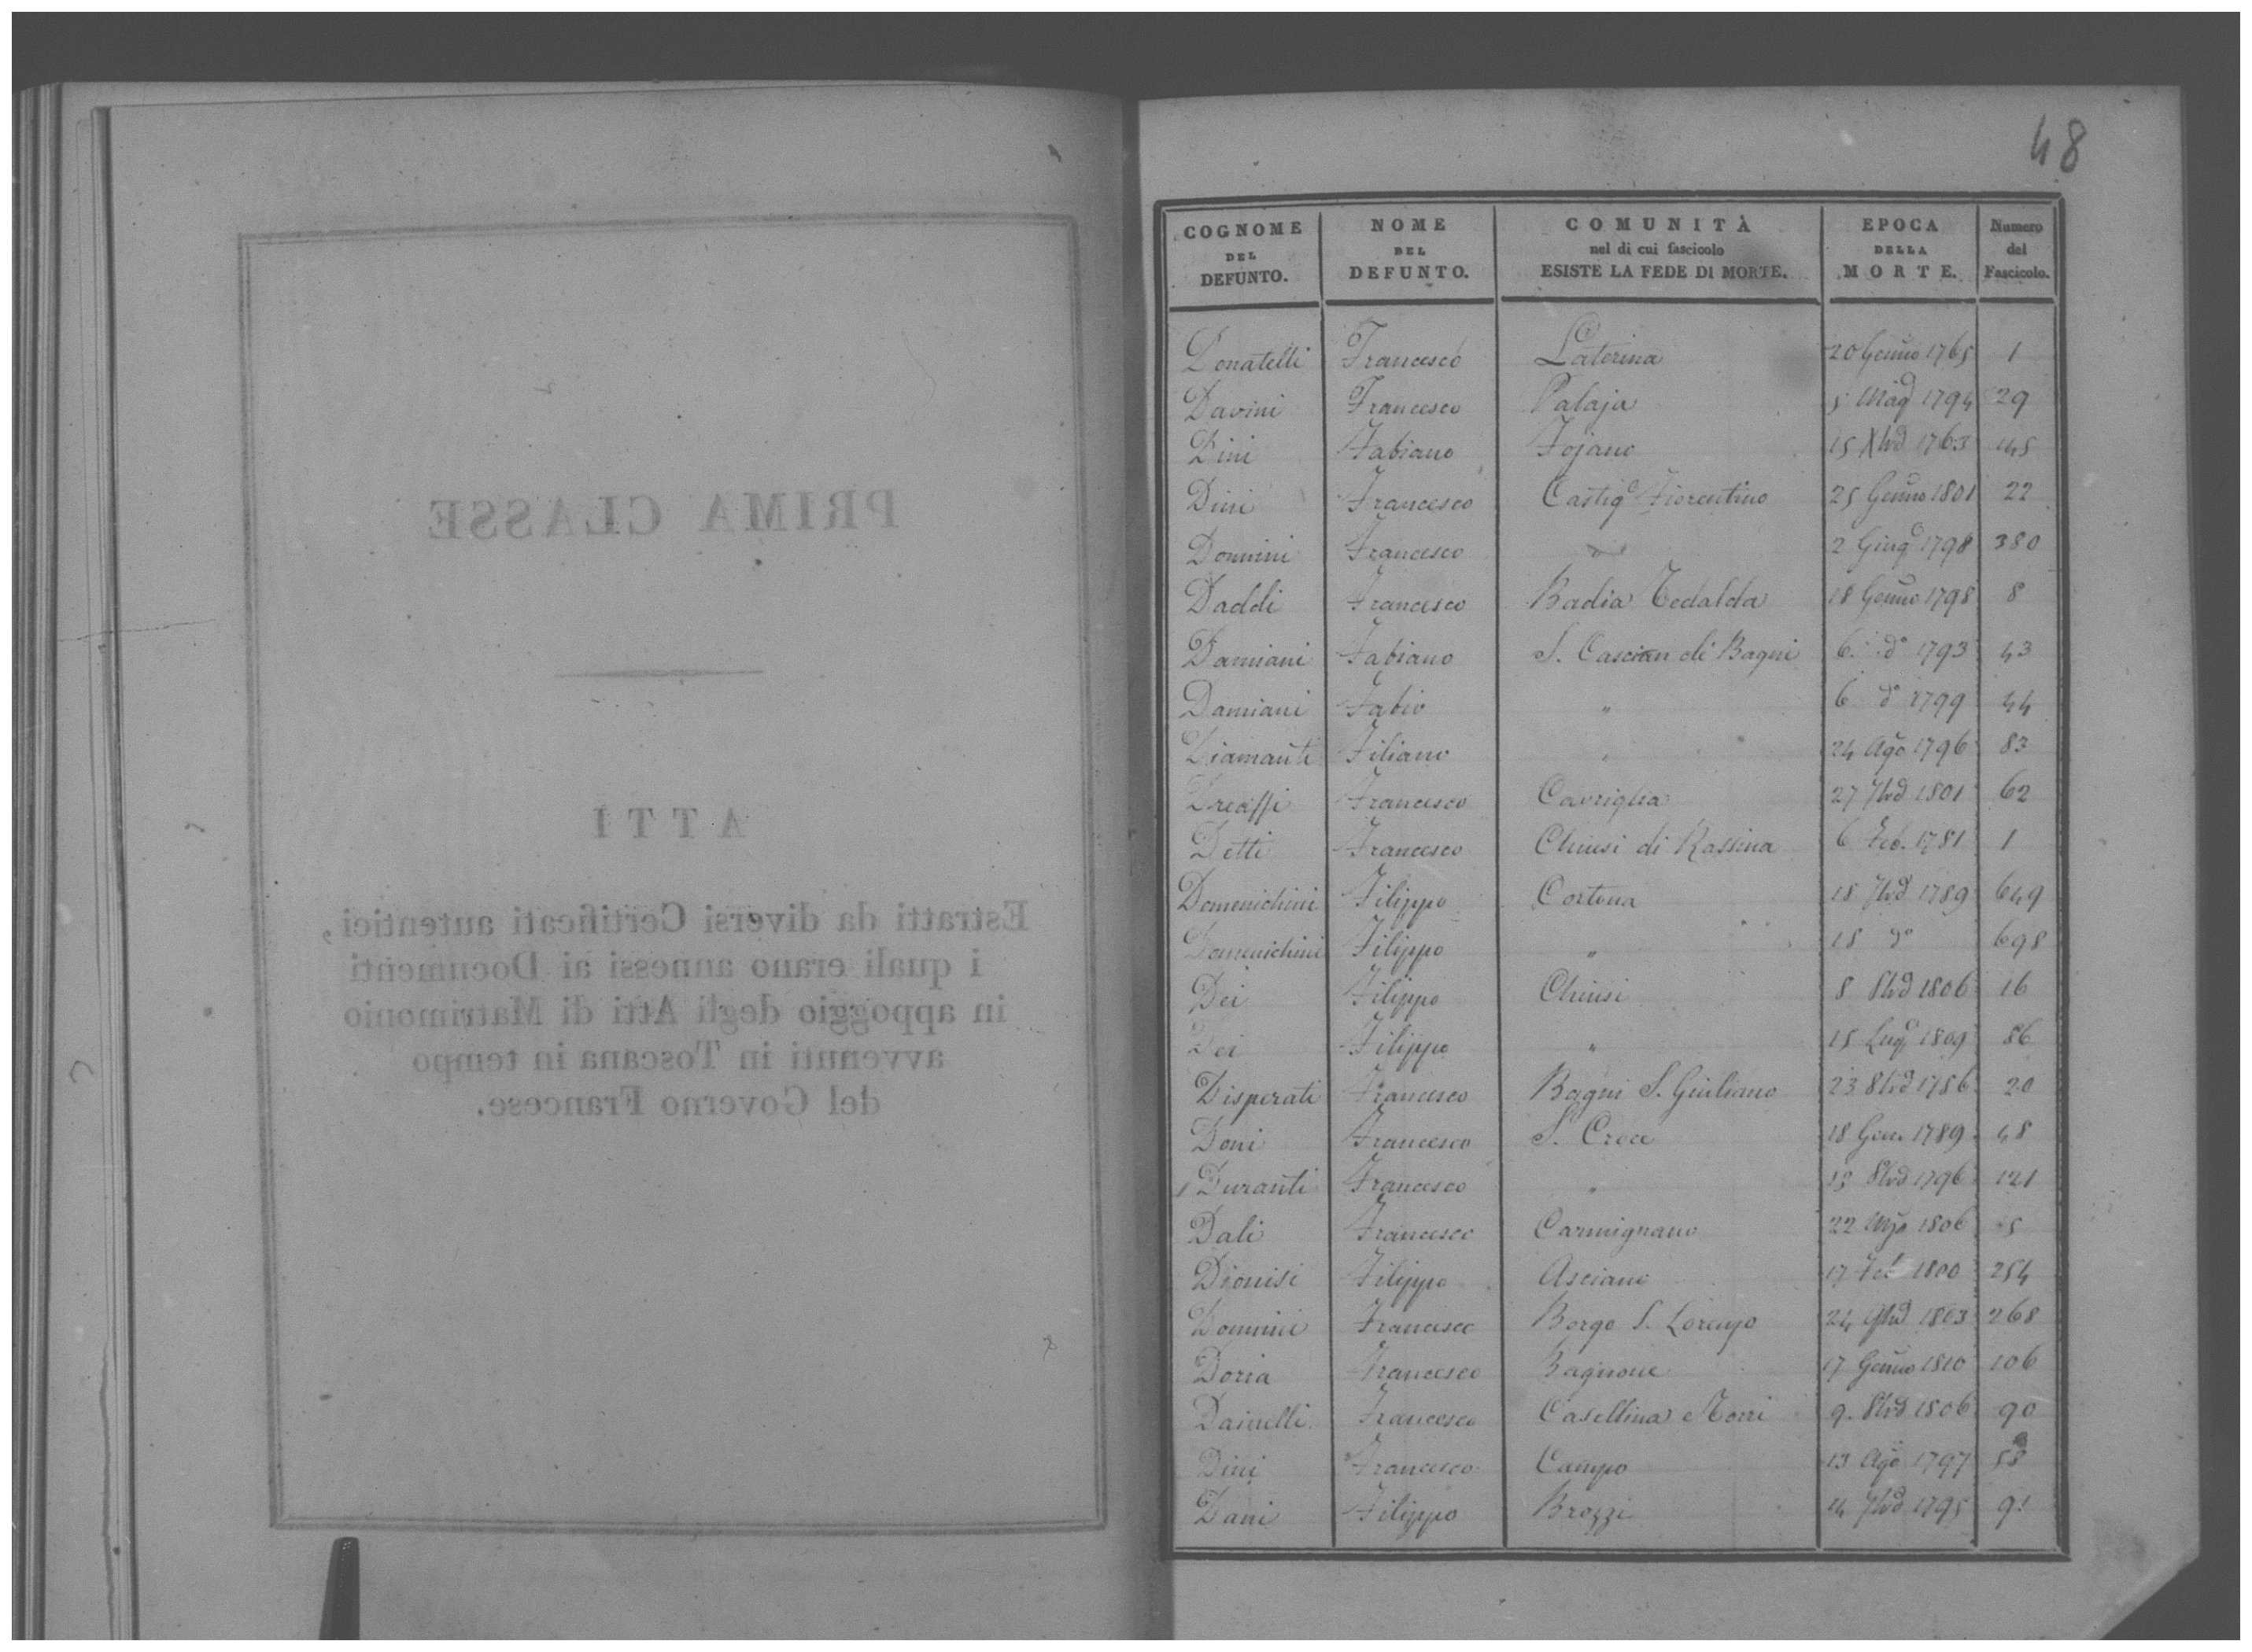 PRIMA CLASSE
ATTI
Estratti da diversi Certificati autentici,
i quali erano annessi ai Documenti
in appoggio degli Atti di Matrimonio
avvenuti in Toscana in tempo
del Governo Francese.
48
COGNOME DEL DEFUNTO. NOME DEL DEFUNTO. COMUNITÀ nel di cui fascicolo ESISTE LA FEDE DI MORTE. EPOCA DELLA MORTE. Numero del Fascicolo.
Donatelli Francesco Laterina 20 Genno 1765 1
Davini Francesco Palaja 5 Magº 1794 29
Dini Fabiano Fojano 15 Xbrẽ 1763 145
Dini Francesco Castigº Fiorentino 25 Genno 1801 22
Donnini Francesco 2 Giugº 1798 380
Daddi Francesco Badia Tedalda 18 Genno 1798 8
Damiani Fabiano S. Cascian di Bagni 6. dº 1793 43
Damiani Fabio " 6 dº 1799 44
Diamanti Filiano " 24 Ago 1796 83
Francesco Cavriglia 27 7brẽ 1801 62
Detti Francesco Chiusi di Rassina 6 Feb. 1781 1
Domenichini Filippo Cortona 18 7brẽ 1789 649
Domenichini Filippo " 18 dº 698
Dei Filippo Chiusi 8 8brẽ 1806 16
Dei Filippo " 15 Lugº 1809 86
Disperati Francesco Bagni S. Giuliano 23 8brẽ 1786 20
Doni Francesco S. Croce 18 Gen. 1789 48
Duranti Francesco " 13 8brẽ 1796 121
Dali Francesco Carmignano 22 1806 5
Dionisi Filippo Asciano 17 Feb 1800 254
Donnini Francesco Borgo S. Lorenzo 24 9brẽ 1803 268
Doria Francesco Bagnone 17 Genno 1810 106
Dainelli Francesco Casellina e Torri 9. 8brẽ 1806 90
Dini Francesco Campo 13 Ago 1797 58
Dani Filippo Brozzi 14 7brẽ 1795 91